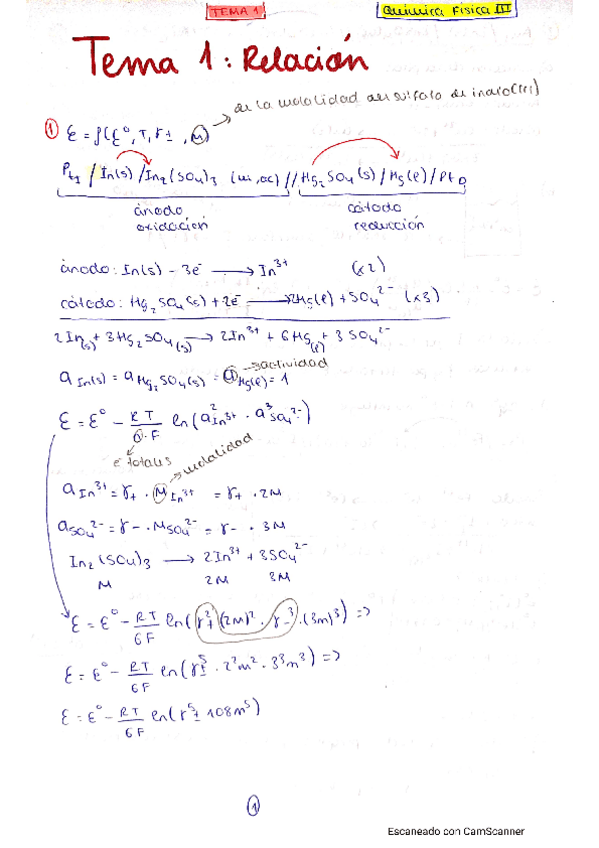 TEMA 1
Química Física III
Tema 1: Relación
de la molalidad del sulfato de indio(III)
① ε = f(ε°, T, γ±, m)
Pt_I / In(s) / In₂(SO₄)₃ (m, ac) // Hg₂SO₄(s) / Hg(l) / Pt_D
ánodo cátodo
oxidación reducción
ánodo: In(s) - 3e⁻ → In³⁺ (x2)
cátodo: Hg₂SO₄(s) + 2e⁻ → 2Hg(l) + SO₄²⁻ (x3)
2In(s) + 3Hg₂SO₄(s) → 2In³⁺ + 6Hg(l) + 3SO₄²⁻
a In(s) = a Hg₂SO₄(s) = a Hg(l) = 1 → actividad
ε = ε° - RT/6·F ln(a²In³⁺ · a³SO₄²⁻)
e⁻ totales
molalidad
a In³⁺ = γ₊ · m In³⁺ = γ₊ · 2m
a SO₄²⁻ = γ₋ · m SO₄²⁻ = γ₋ · 3m
In₂(SO₄)₃ → 2In³⁺ + 3SO₄²⁻
m 2m 3m
ε = ε° - RT/6F ln(γ₊² (2m)² · γ₋³ · (3m)³) =>
ε = ε° - RT/6F ln(γ±⁵ · 2²m² · 3³m³) =>
ε = ε° - RT/6F ln(γ±⁵ 108m⁵)
①
Escaneado con CamScanner